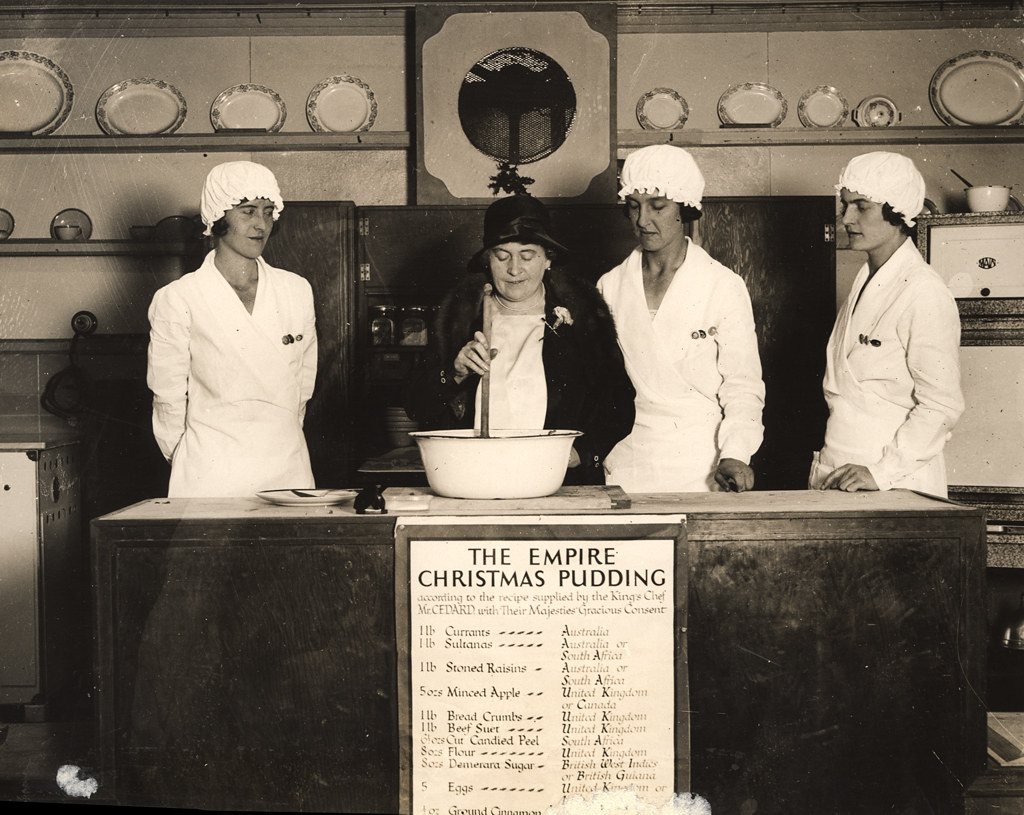 MAIN
THE EMPIRE
CHRISTMAS PUDDING
according to the recipe supplied by the King's Chef
Mr. CEDARD, with Their Majesties' Gracious Consent
1 lb Currants Australia
1 lb Sultanas Australia or
South Africa
1 lb Stoned Raisins Australia or
South Africa
5 ozs Minced Apple United Kingdom
or Canada
1 lb Bread Crumbs United Kingdom
1 lb Beef Suet United Kingdom
6½ ozs Cut Candied Peel South Africa
8 ozs Flour United Kingdom
8 ozs Demerara Sugar British West Indies
or British Guiana
5 Eggs United Kingdom or
oz Ground Cinnamon